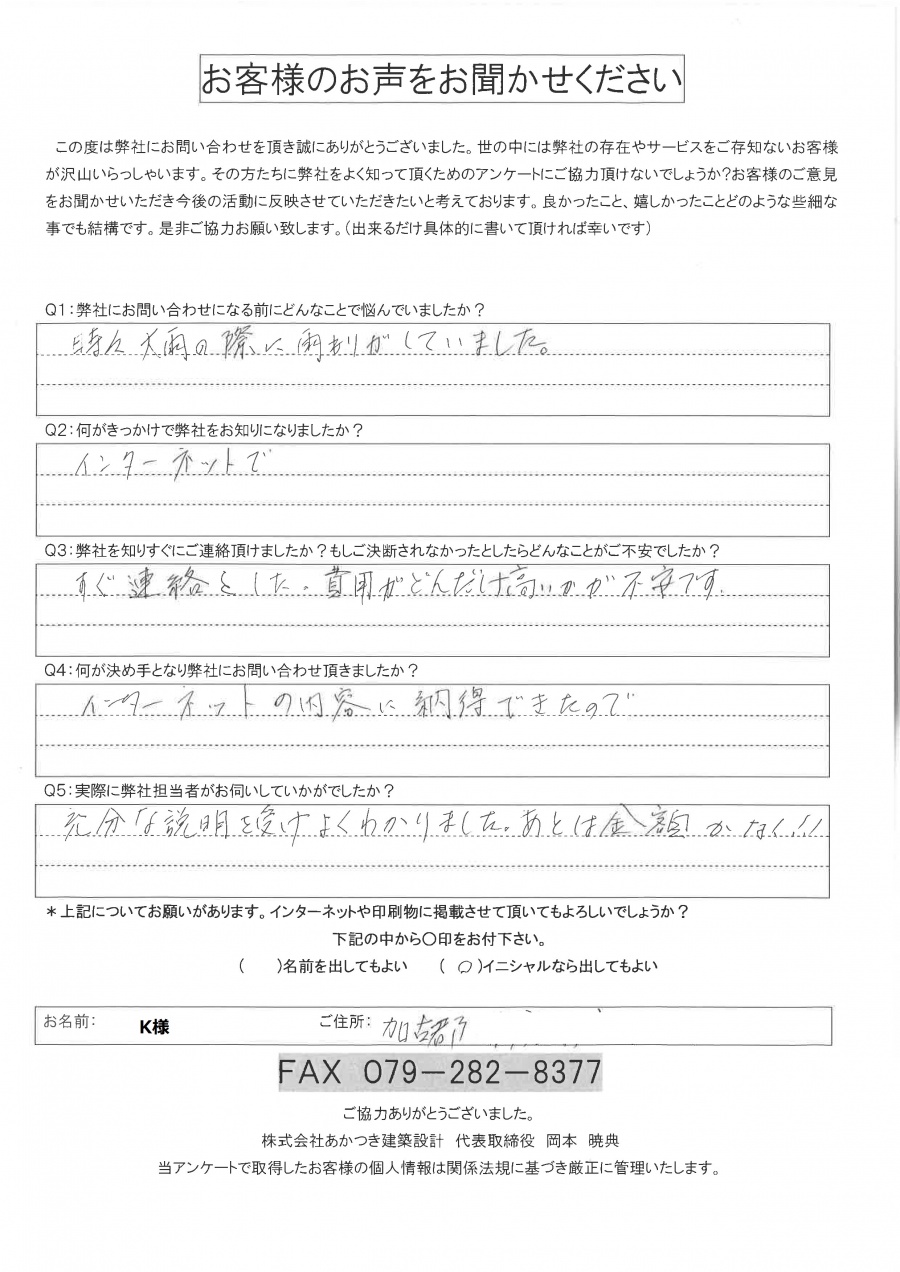 お客様のお声をお聞かせください
この度は弊社にお問い合わせを頂き誠にありがとうございました。世の中には弊社の存在やサービスをご存知ないお客様
が沢山いらっしゃいます。その方たちに弊社をよく知って頂くためのアンケートにご協力頂けないでしょうか?お客様のご意見
をお聞かせいただき今後の活動に反映させていただきたいと考えております。良かったこと、嬉しかったことどのような些細な
事でも結構です。是非ご協力お願い致します。(出来るだけ具体的に書いて頂ければ幸いです)
Q1:弊社にお問い合わせになる前にどんなことで悩んでいましたか?
時々大雨の際に雨もりがしていました。
Q2:何がきっかけで弊社をお知りになりましたか?
インターネットで
Q3:弊社を知りすぐにご連絡頂けましたか?もしご決断されなかったとしたらどんなことがご不安でしたか?
すぐ連絡をした。費用がどんだけ高いかが不安です.
Q4:何が決め手となり弊社にお問い合わせ頂きましたか?
インターネットの内容に納得できたので
Q5:実際に弊社担当者がお伺いしていかがでしたか?
充分な説明を受けよくわかりました。あとは金額かな(!!!
*上記についてお願いがあります。インターネットや印刷物に掲載させて頂いてもよろしいでしょうか?
下記の中から〇印をお付下さい。
( )名前を出してもよい (〇)イニシャルなら出してもよい
お名前: K様 ご住所: 加古郡
FAX 079-282-8377
ご協力ありがとうございました。
株式会社あかつき建築設計 代表取締役 岡本 暁典
当アンケートで取得したお客様の個人情報は関係法規に基づき厳正に管理いたします。